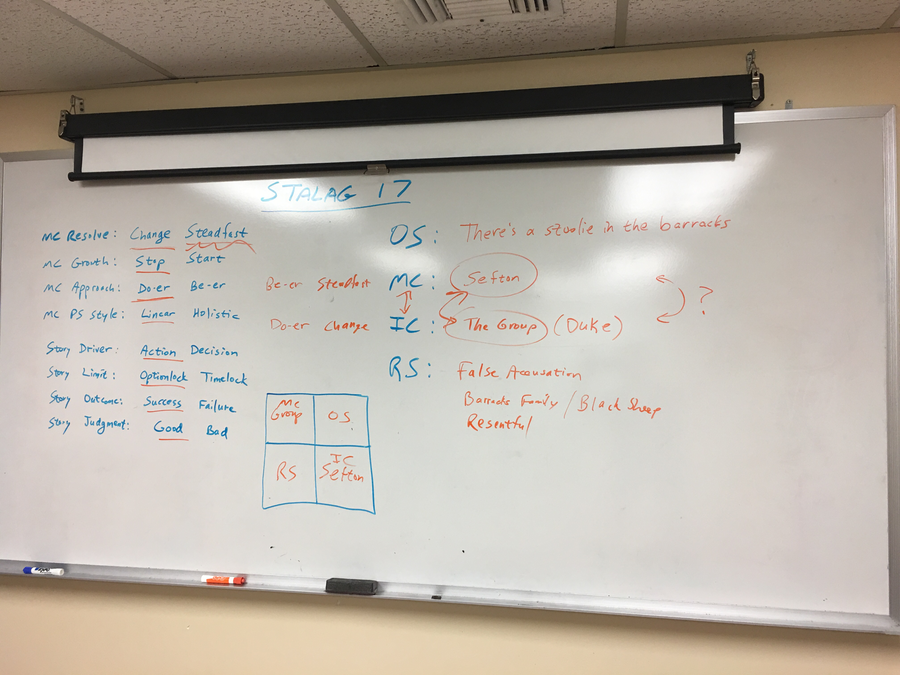 STALAG 17
MC Resolve: Change Steadfast
MC Growth: Stop Start
MC Approach: Do-er Be-er
MC PS Style: Linear Holistic
Story Driver: Action Decision
Story Limit: Optionlock Timelock
Story Outcome: Success Failure
Story Judgment: Good Bad
OS: There's a stoolie in the barracks
Be-er Steadfast MC: Sefton
Do-er Change IC: The Group (Duke)
?
RS: False Accusation
Barracks Family / Black Sheep
Resentful
MC Group
OS
RS
IC Sefton
EXPO